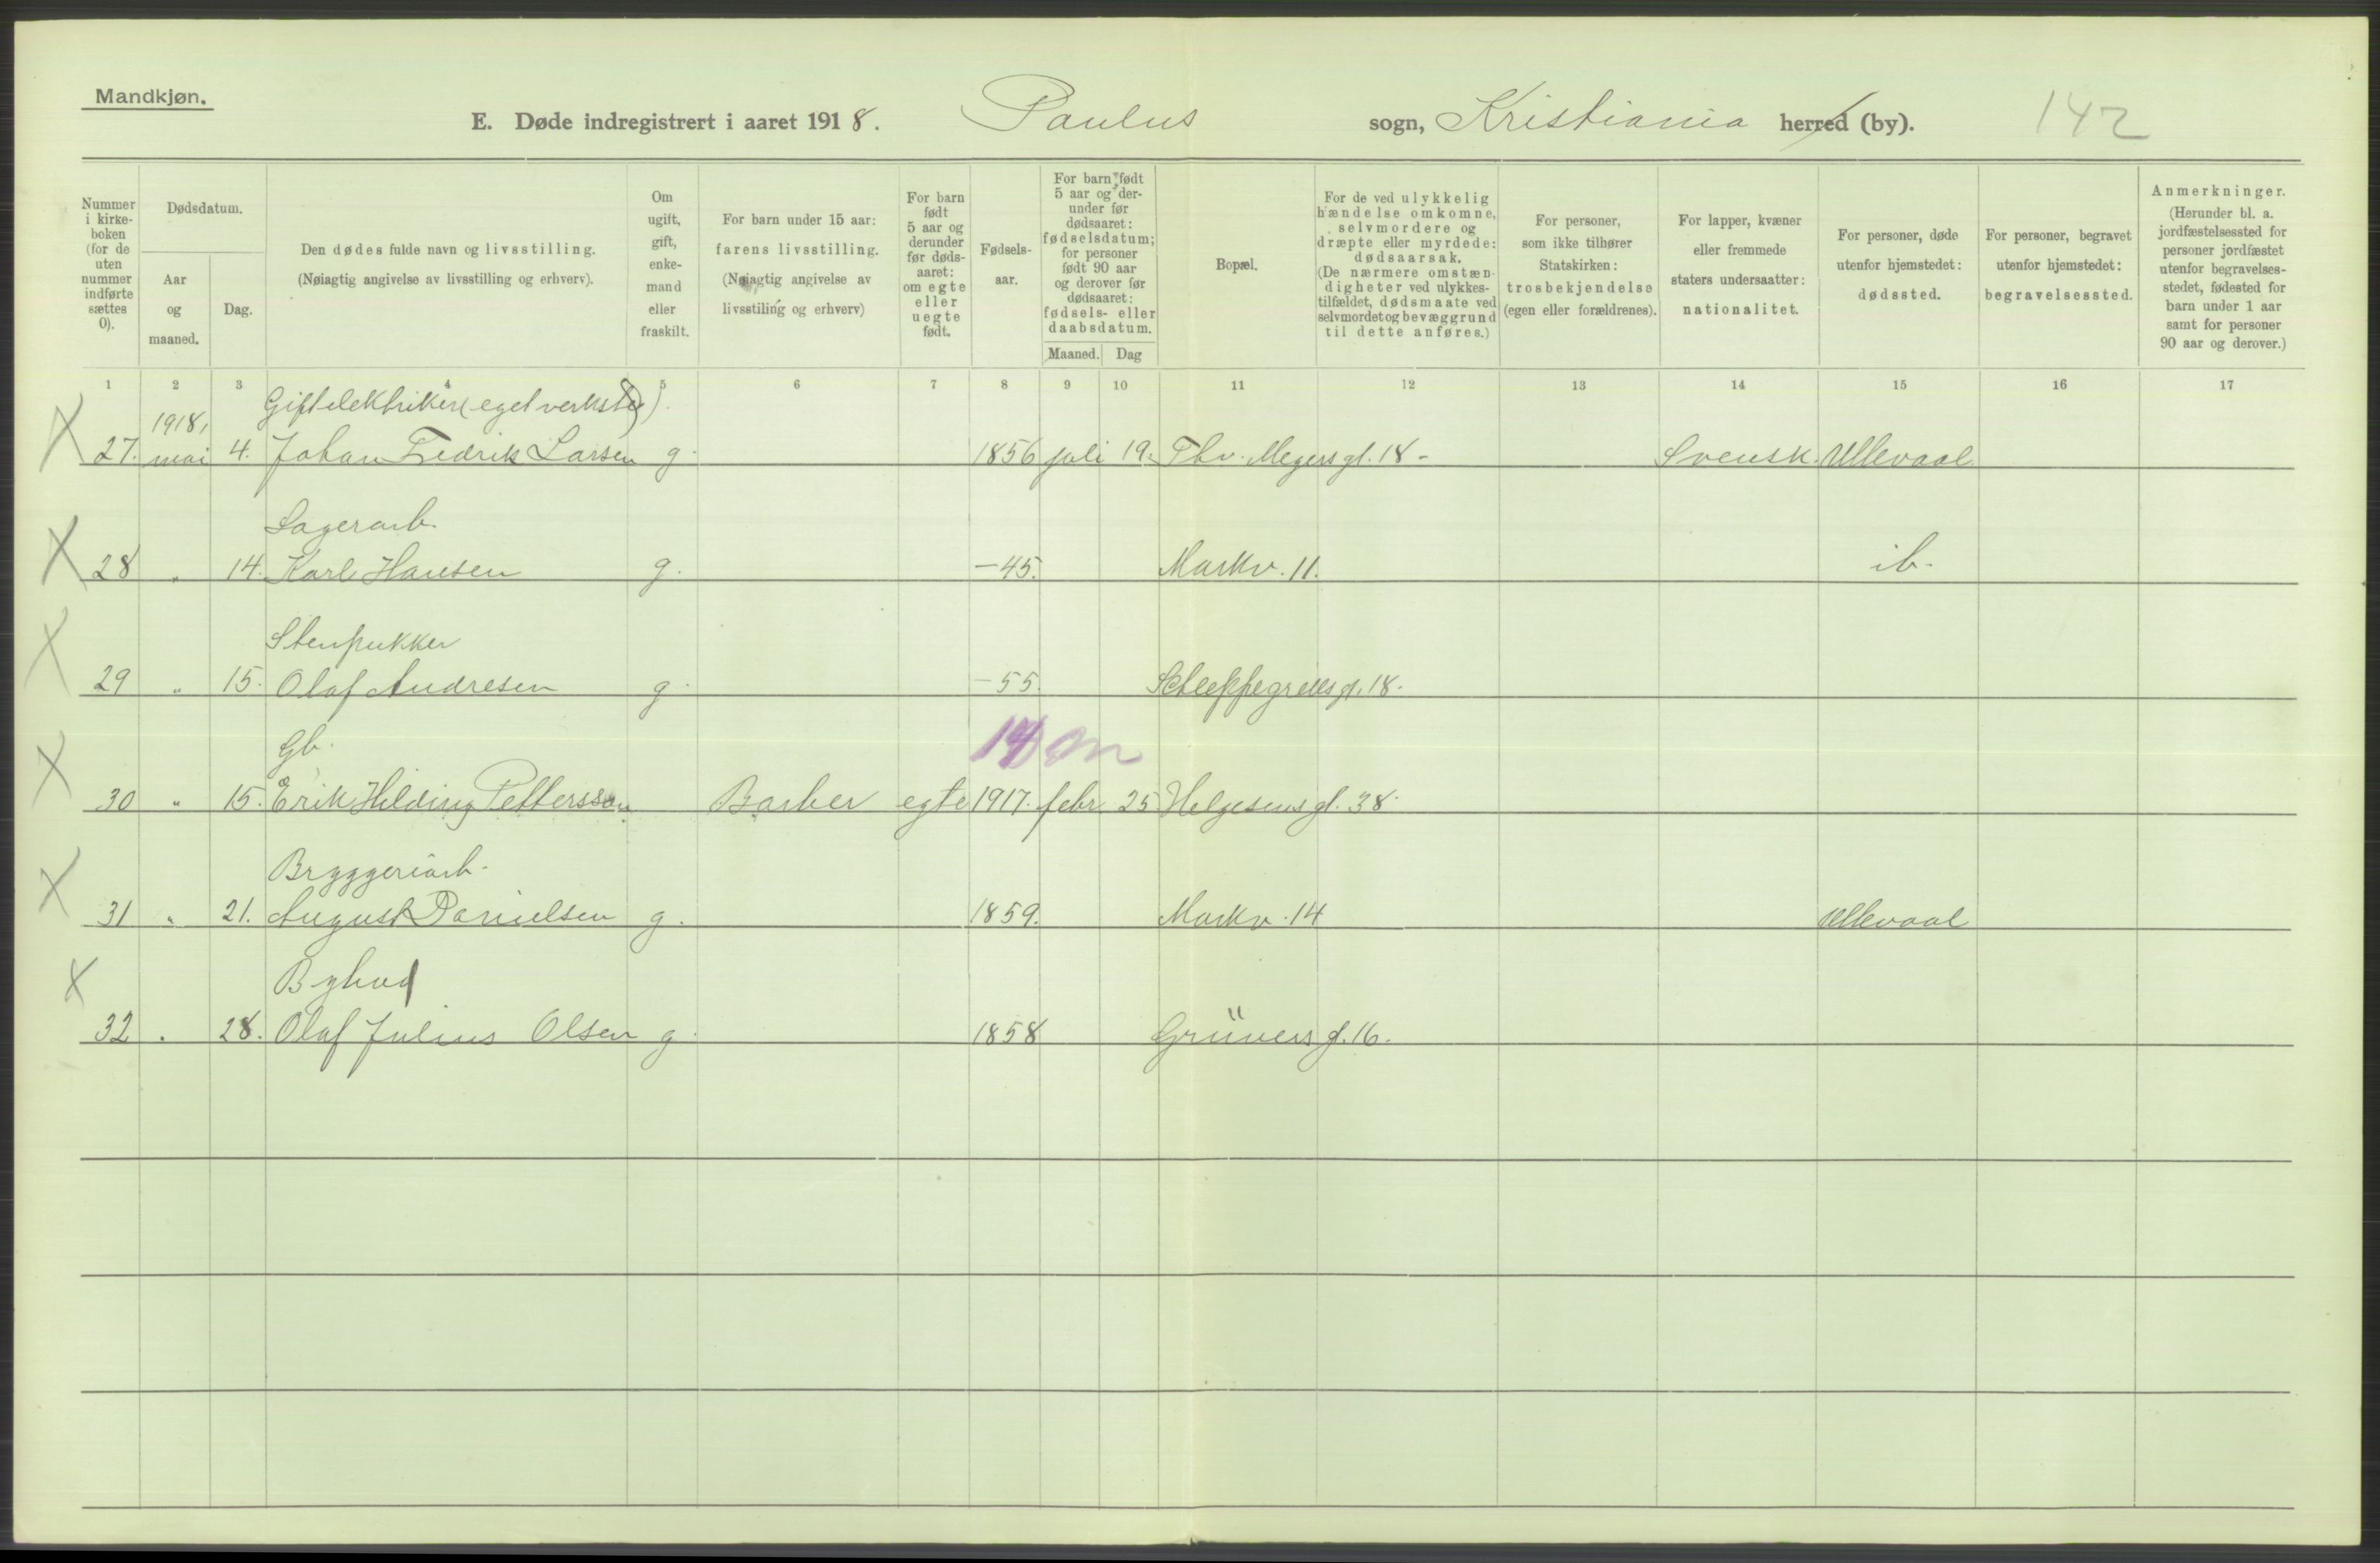 Mandkjøn.
E. Døde indregistrert i aaret 1918. Paulus sogn, Kristiania herred (by). 142
Nummer i kirke- boken (for de uten nummer indførte sættes 0).
Dødsdatum.
Aar og maaned.
Dag.
Den dødes fulde navn og livsstilling.
(Nøiagtig angivelse av livsstilling og erhverv).
Om ugift, gift, enke- mand eller fraskilt.
For barn under 15 aar: farens livsstilling.
(Nøiagtig angivelse av livsstiling og erhverv)
For barn født 5 aar og derunder før døds- aaret: om egte eller uegte født.
Fødsels- aar.
For barn født 5 aar og der- under før dødsaaret: fødselsdatum; for personer født 90 aar og derover før dødsaaret: fødsels- eller daabsdatum.
Maaned. Dag
Bopæl.
For de ved ulykkelig hændelse omkomne, selvmordere og dræpte eller myrdede: dødsaarsak.
(De nærmere omstæn- digheter ved ulykkes- tilfældet, dødsmaate ved selvmordet og bevæggrund til dette anføres.)
For personer, som ikke tilhører Statskirken: trosbekjendelse (egen eller forældrenes).
For lapper, kvæner eller fremmede staters undersaatter: nationalitet.
For personer, døde utenfor hjemstedet: dødssted.
For personer, begravet utenfor hjemstedet: begravelsessted.
Anmerkninger.
(Herunder bl. a. jordfæstelsessted for personer jordfæstet utenfor begravelses- stedet, fødested for barn under 1 aar samt for personer 90 aar og derover.)
1 2 3 4 5 6 7 8 9 10 11 12 13 14 15 16 17
Gift elektriker (eget verksted).
1918,
X 27. mai 4. Johan Fredrik Larsen g. 1856 juli 19. Thv. Meyers gt. 18 - Svensk. Ullevaal
Lagerarb.
X 28 " 14. Karl Hansen g. -45. Markv. 11. ib.
Stenpukker
X 29 " 15. Olaf Andresen g. -55. Schleppegrells gt. 18.
Gb.
X 30 " 15. Erik Hilding Pettersson Barber egte 1917. febr. 25 Helgesens gt. 38.
Bryggeriarb.
X 31 " 21. August Danielsen g. 1859. Markv. 14 Ullevaal
Bybud
X 32 " 28. Olaf Julius Olsen g. 1858 Grüners g. 16.